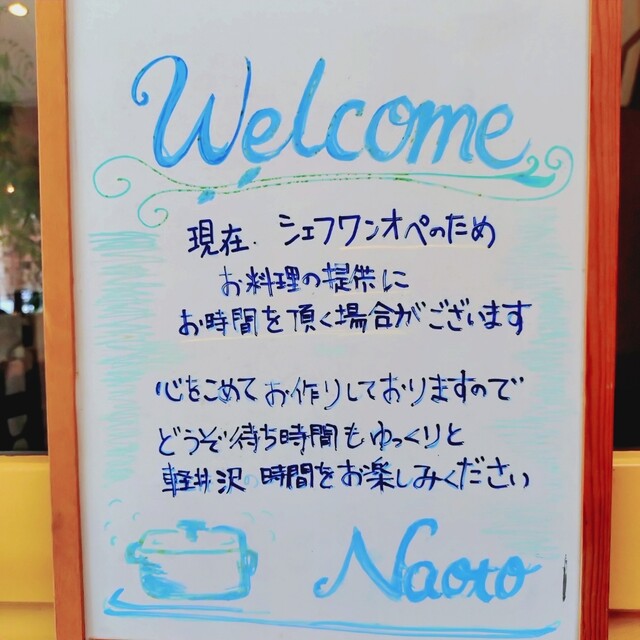 Welcome
現在、シェフワンオペのため
お料理の提供に
お時間を頂く場合がございます
心をこめてお作りしておりますので
どうぞ待ち時間もゆっくりと
軽井沢の時間をお楽しみください
Naoto